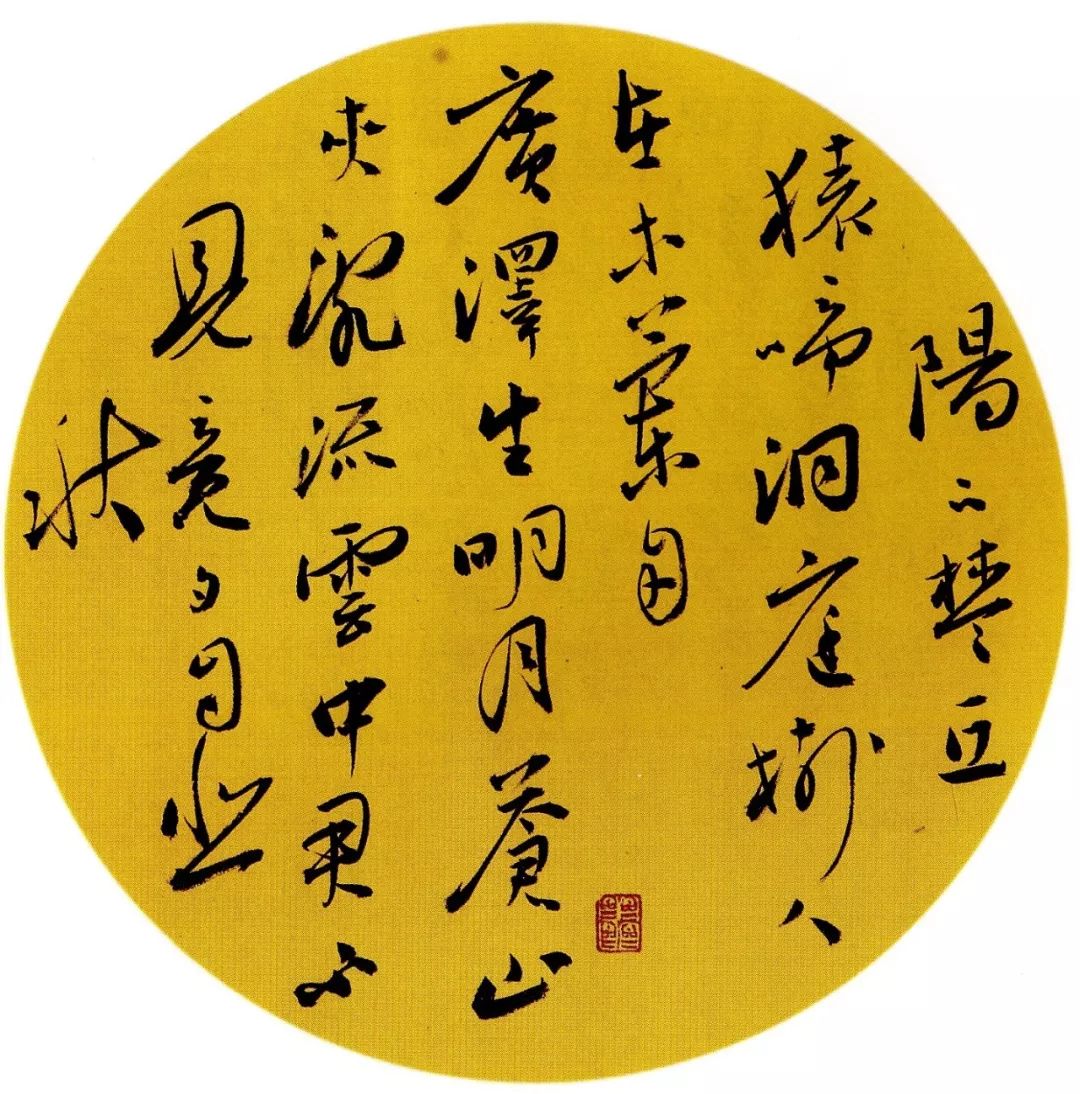 陽下楚丘
猿啼洞庭樹人
在木蘭舟
廣澤生明月蒼山
夾亂流雲中君不
見竟夕自悲
秋